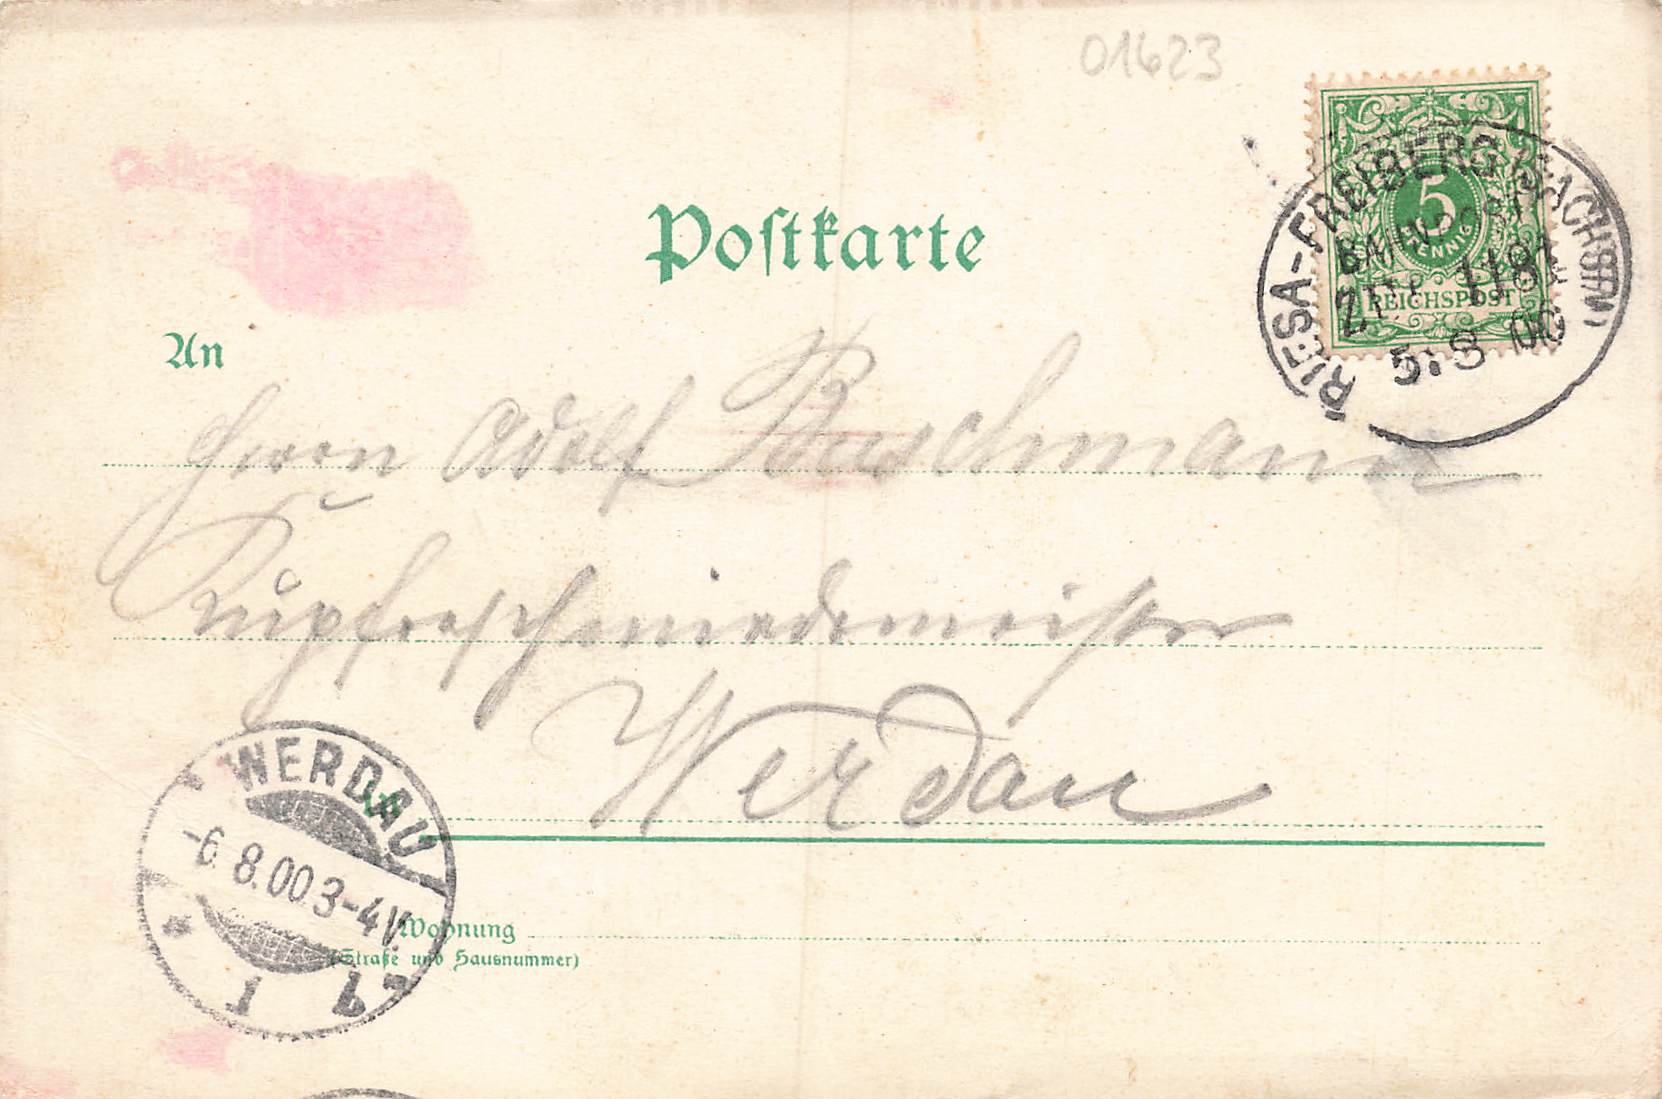 01623
5
PFENNIG
REICHSPOST
RIESA-FREIBERG (SACHSEN)
BAHNPOST
ZUG 1181
5:8 00
Postkarte
An
Herrn Adolf Buschmann
Kupferschmiedemeister
Werdau
WERDAU
-6.8.00 3-4V.
1
Wohnung
(Straße und Hausnummer)